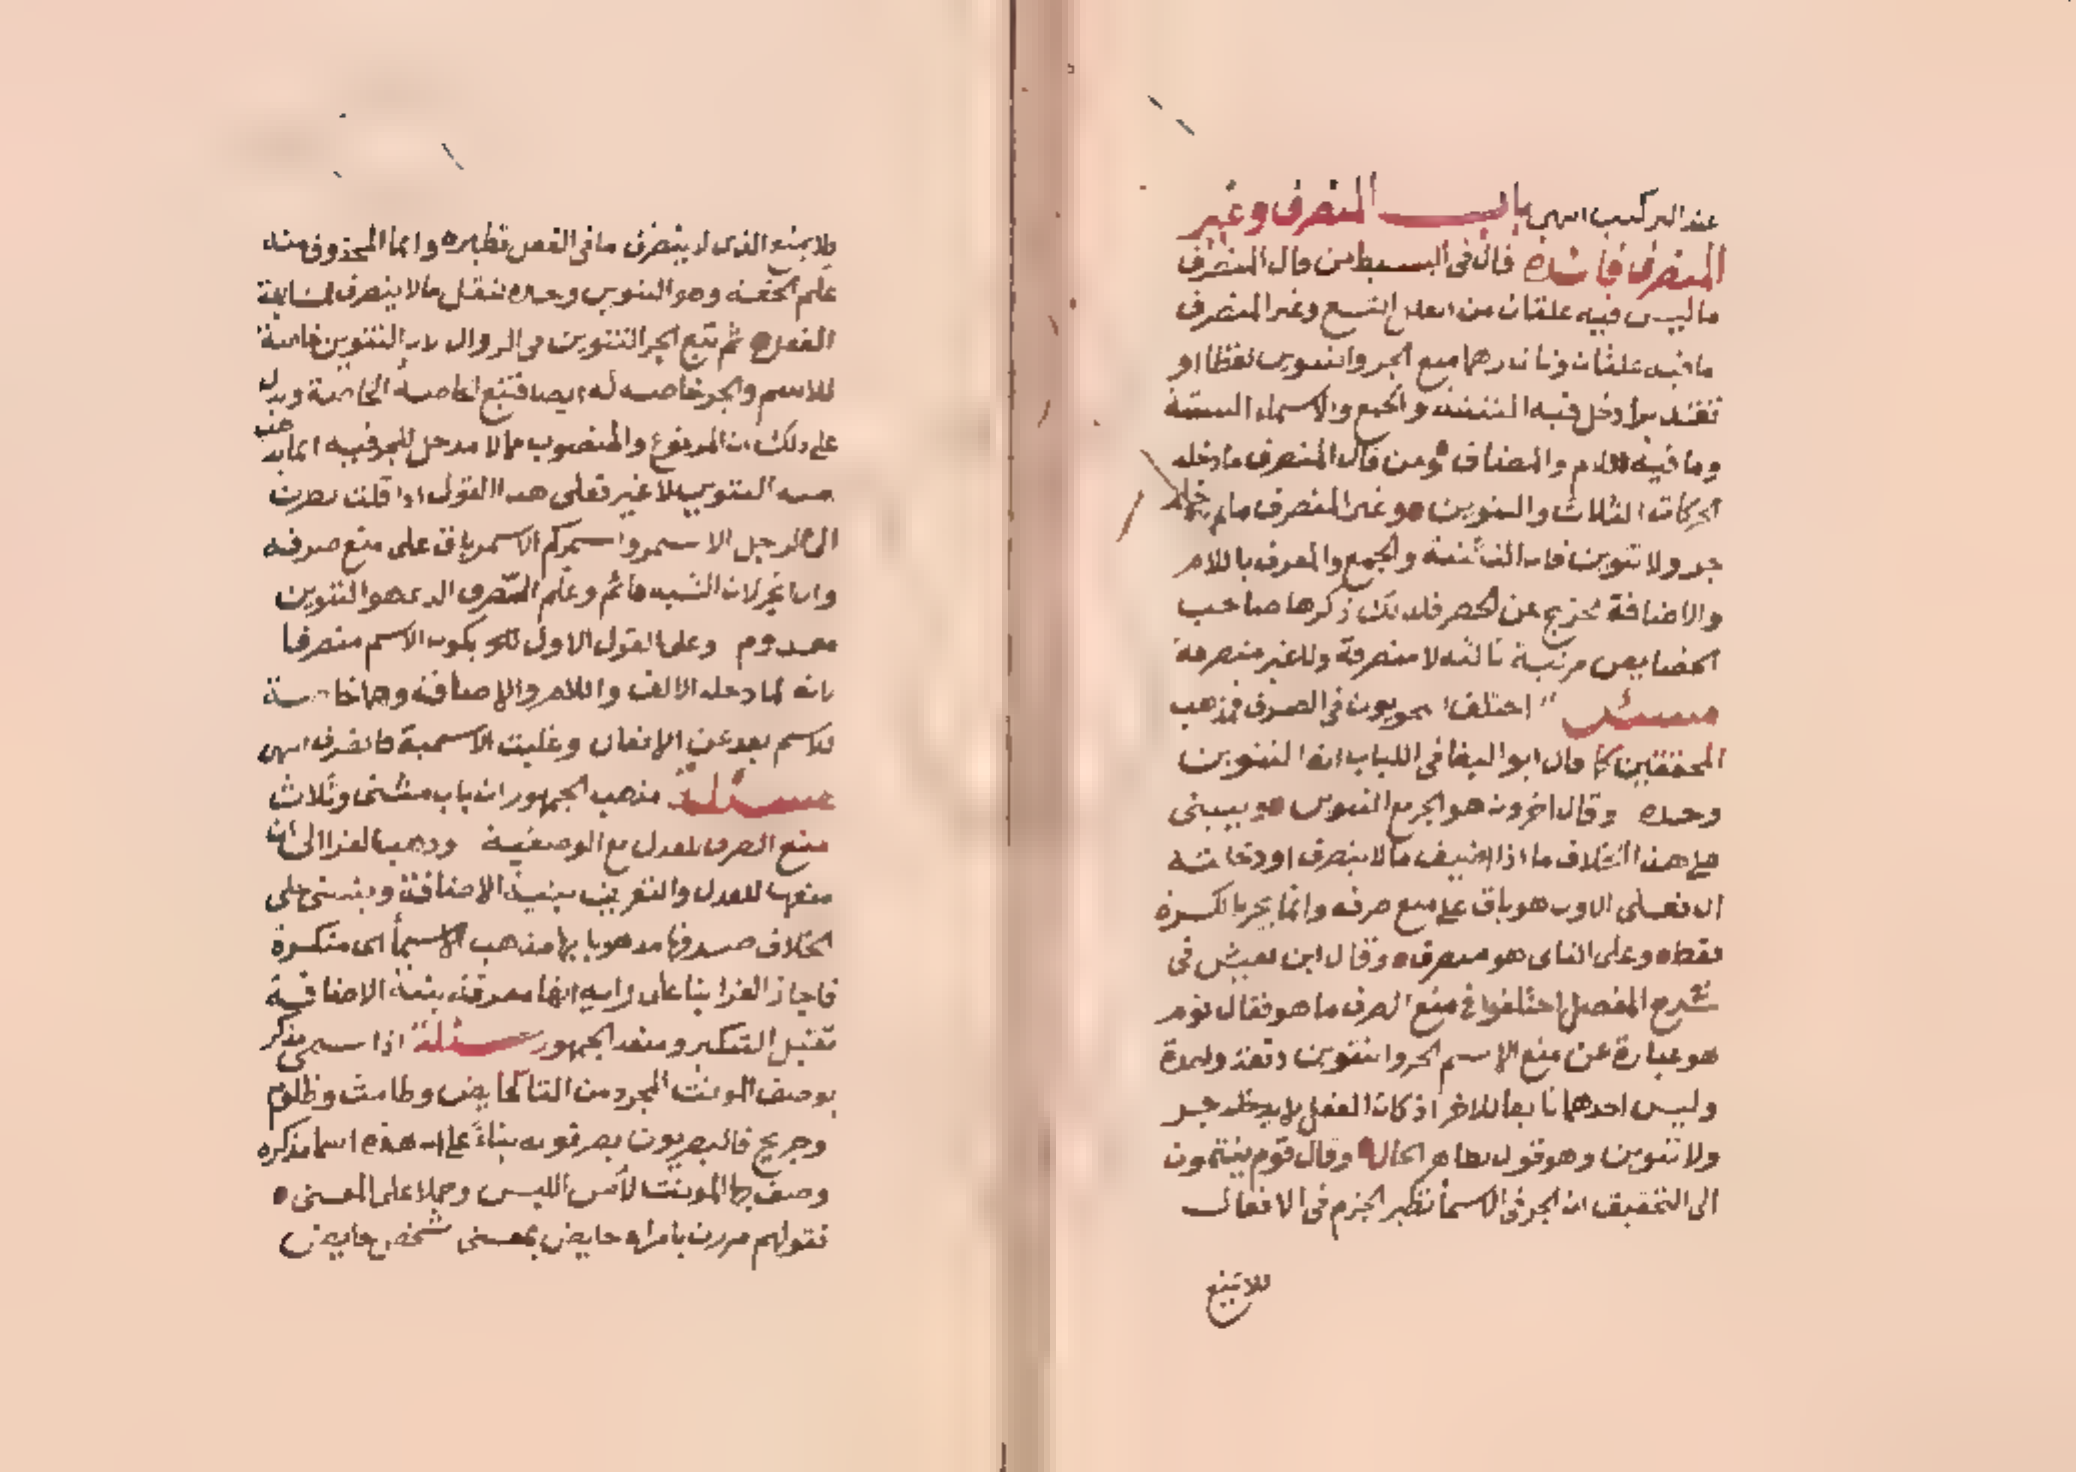 عند التركيب انتهى باب المنصرف وغير
المنصرف فائدة قال فى البسيط من قال المنصرف
ما ليس فيه علتان من العلل التسع وغير المنصرف
ما فيه علتان وتاثيرهما منع الجر والتنوين لفظا او
تقديرا دخل فيه التثنية والجمع والاسماء الستة
وما فيه اللام والمضاف ومن قال المنصرف ما دخله
الحركات الثلاث والتنوين وغير المنصرف ما لم يدخله
جر ولا تنوين فان التثنية والجمع والمعرف باللام
والاضافة تخرج عن الحصر فلذلك ذكرها صاحب
الخصايص مرتبة ثالثة لا منصرفة ولا غير منصرفة
مسئلة اختلف النحويون فى الصرف فمذهب
المحققين كما قال ابو البقا فى اللباب انه التنوين
وحده وقال اخرون هو الجر مع التنوين وينبنى
على هذا الخلاف ما اذا اضيف ما لا ينصرف او دخلته
ال فعلى الاول هو باق على منع صرفه وانما يجر بالكسرة
فقط وعلى الثانى هو منصرف وقال ابن يعيش فى
شرح المفصل اختلفوا فى منع الصرف ما هو فقال قوم
هو عبارة عن منع الاسم الجر والتنوين دفعة واحدة
وليس احدهما تابعا للاخر اذ كان الفعل لا يدخله جر
ولا تنوين وهو قول بظاهر الحال وقال قوم ينتمون
الى التحقيق ان الجر فى الاسما نظير الجزم فى الافعال
فلا يمنع
فلا يمنع الذى لا ينصرف ما فى الفعل نظيره وانما المحذوف منه
علم الخفة وهو التنوين وحده لثقل ما لا ينصرف لمشابهة
الفعل ثم تبع الجر التنوين فى الزوال لان التنوين خاصة
للاسم والجر خاصة له ايضا فتبع الخاصة الخاصة ويدل
على ذلك ان المرفوع والمنصوب مما لا مدخل للجر فيه انما يذهب
منه التنوين لا غير فعلى هذا القول اذا قلت نظرت
الى الرجل الاسمر واسمركم الاسمر باق على منع صرفه
وان انجر لان الشبه قائم وعلم الصرف الذى هو التنوين
معدوم وعلى القول الاول يكون الاسم منصرفا
لانه لما دخله الالف واللام والاضافة وهما خاصة
للاسم بعد عن الافعال وغلبت الاسمية فانصرف انتهى
مسئلة مذهب الجمهور ان باب مثنى وثلاث
منع الصرف للعدل مع الوصفية وذهب الفرا الى ان
منعها للعدل والتعريف بنية الاضافة وينبنى على
الخلاف صرفها مذهوبا بها مذهب الاسما اى منكرة
فاجاز الفرا بنا على رايه انها معرفة بنية الاضافة
تقبل التنكير ومنعه الجمهور مسئلة اذا سمى مذكر
بوصف المونث المجرد من التا كحايض وطامث وظلوم
وجريح فالبصريون يصرفونه بناء على ان هذه اسما مذكره
وصف بها المونث لامن اللبس وحملا على المعنى
فقولهم مررت بامراه حايض بمعنى شخص حايض